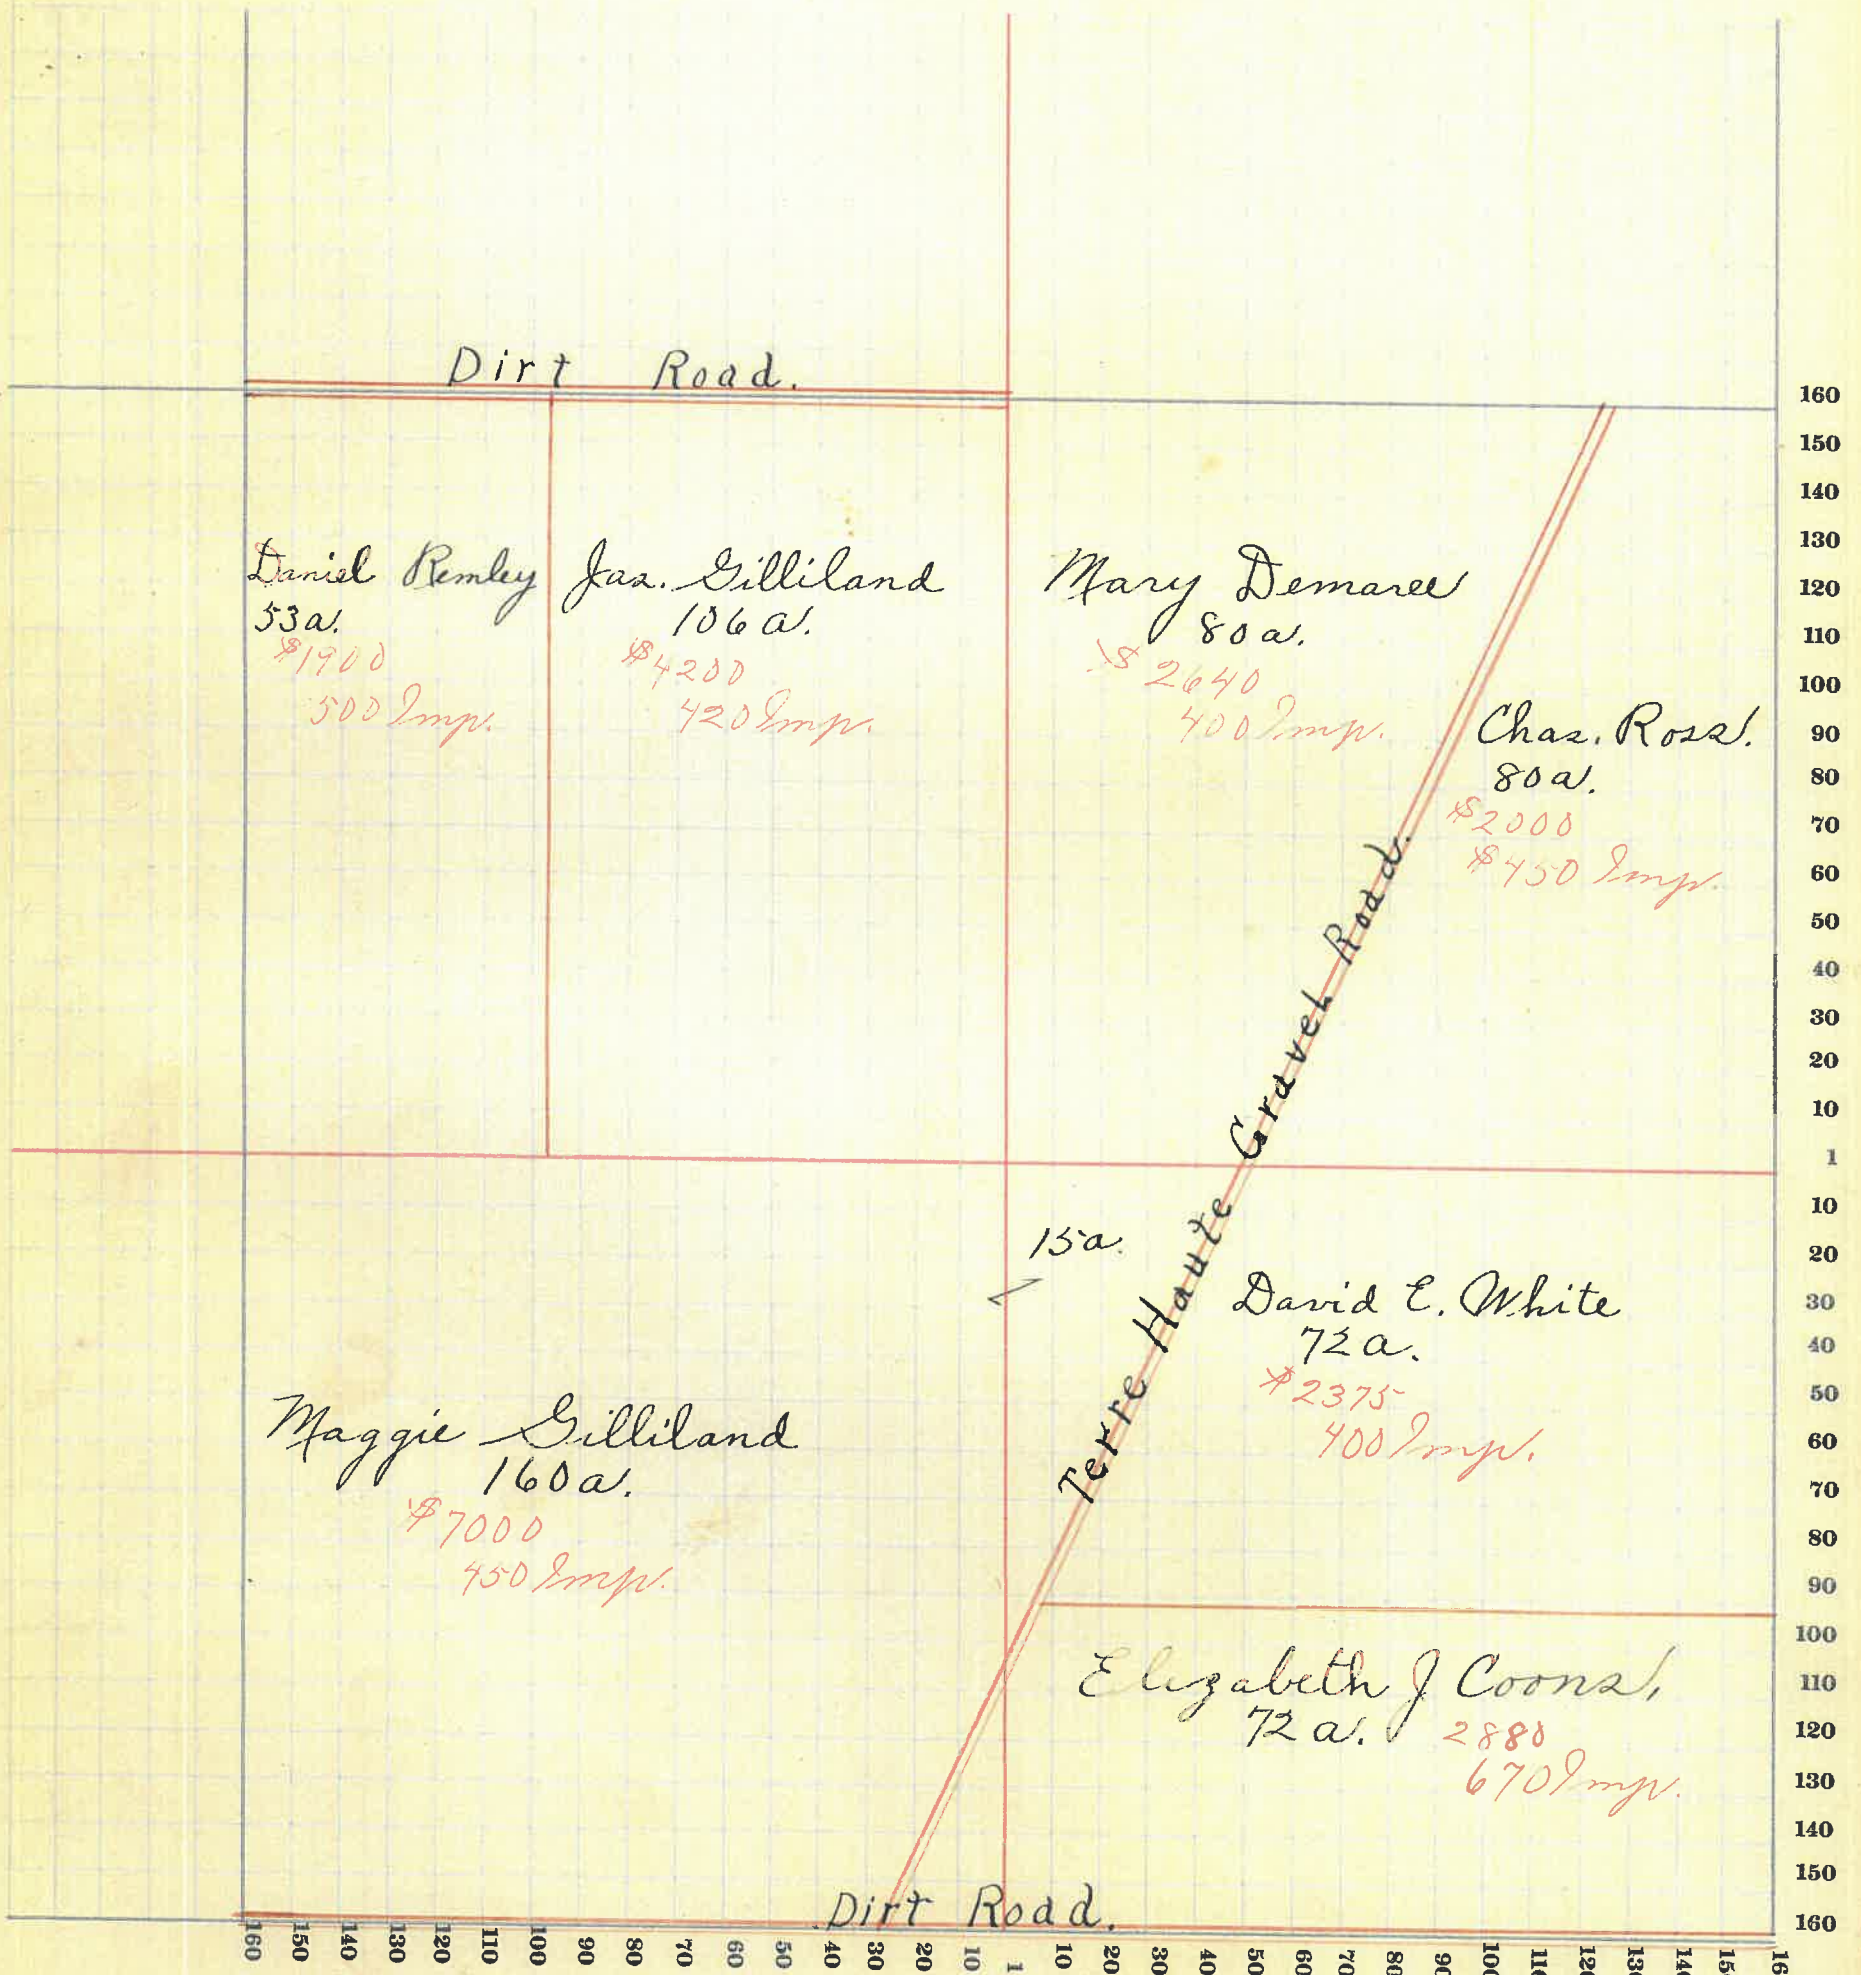 Dirt Road.
Daniel Remley
53a.
$1900
500 Imp.
Jas. Gilliland
106a.
$4200
420 Imp.
Mary Demaree
80a.
$2640
400 Imp.
Chas. Ross.
80a.
$2000
$450 Imp.
Terre Haute Gravel Road.
15a.
David E. White
72a.
$2375
400 Imp.
Maggie Gilliland
160a.
$7000
450 Imp.
Elizabeth J Coons.
72a. 2880
670 Imp.
Dirt Road.
160
150
140
130
120
110
100
90
80
70
60
50
40
30
20
10
1
10
20
30
40
50
60
70
80
90
100
110
120
130
140
150
160
160 150 140 130 120 110 100 90 80 70 60 50 40 30 20 10 1 10 20 30 40 50 60 70 80 90 100 110 120 130 140 150 16